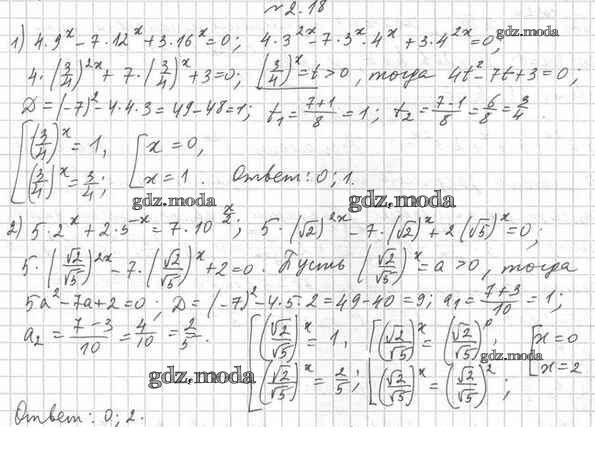 №2.18
1) 4·9^x − 7·12^x + 3·16^x = 0; 4·3^{2x} − 7·3^x·4^x + 3·4^{2x} = 0; gdz.moda
4·(3/4)^{2x} + 7·(3/4)^x + 3 = 0; (3/4)^x = t > 0, тогда 4t² − 7t + 3 = 0;
D = (−7)² − 4·4·3 = 49 − 48 = 1; t₁ = (7+1)/8 = 1; t₂ = (7−1)/8 = 6/8 = 3/4.
[(3/4)^x = 1, [x = 0,
[(3/4)^x = 3/4; [x = 1. Ответ: 0; 1.
gdz.moda gdz.moda
2) 5·2^x + 2·5^{−x} = 7·10^{x/2}; 5·(√2)^{2x} − 7·(√2)^x + 2(√5)^x = 0;
5·(√2/√5)^{2x} − 7·(√2/√5)^x + 2 = 0. Пусть (√2/√5)^x = a > 0, тогда
5a² − 7a + 2 = 0; D = (−7)² − 4·5·2 = 49 − 40 = 9; a₁ = (7+3)/10 = 1;
a₂ = (7−3)/10 = 4/10 = 2/5. [(√2/√5)^x = 1, [(√2/√5)^x = (√2/√5)^0, [x = 0
gdz.moda [(√2/√5)^x = 2/5; [(√2/√5)^x = (√2/√5)^2; [x = 2
gdz.moda
Ответ: 0; 2.